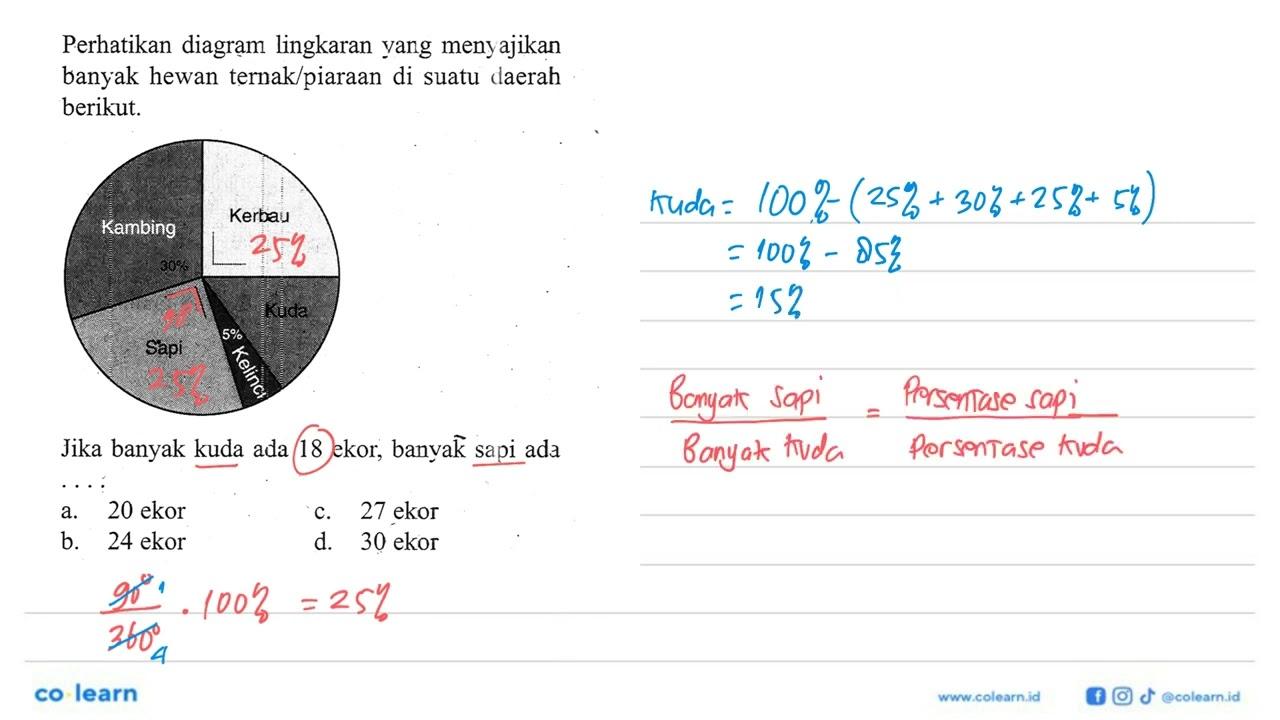 Perhatikan diagram lingkaran yang menyajikan
banyak hewan ternak/piaraan di suatu daerah
berikut.
Kambing
30%
Kerbau
25%
Kuda
90°
Sapi
25%
5%
Kelinci
Jika banyak kuda ada 18 ekor, banyak sapi ada
. . . .
a. 20 ekor
c. 27 ekor
b. 24 ekor
d. 30 ekor
90° 1
360° 4
. 100% = 25%
Kuda = 100% - (25% + 30% + 25% + 5%)
= 100% - 85%
= 15%
Banyak sapi
Banyak kuda
=
Persentase sapi
Persentase kuda
co learn
www.colearn.id
@colearn.id